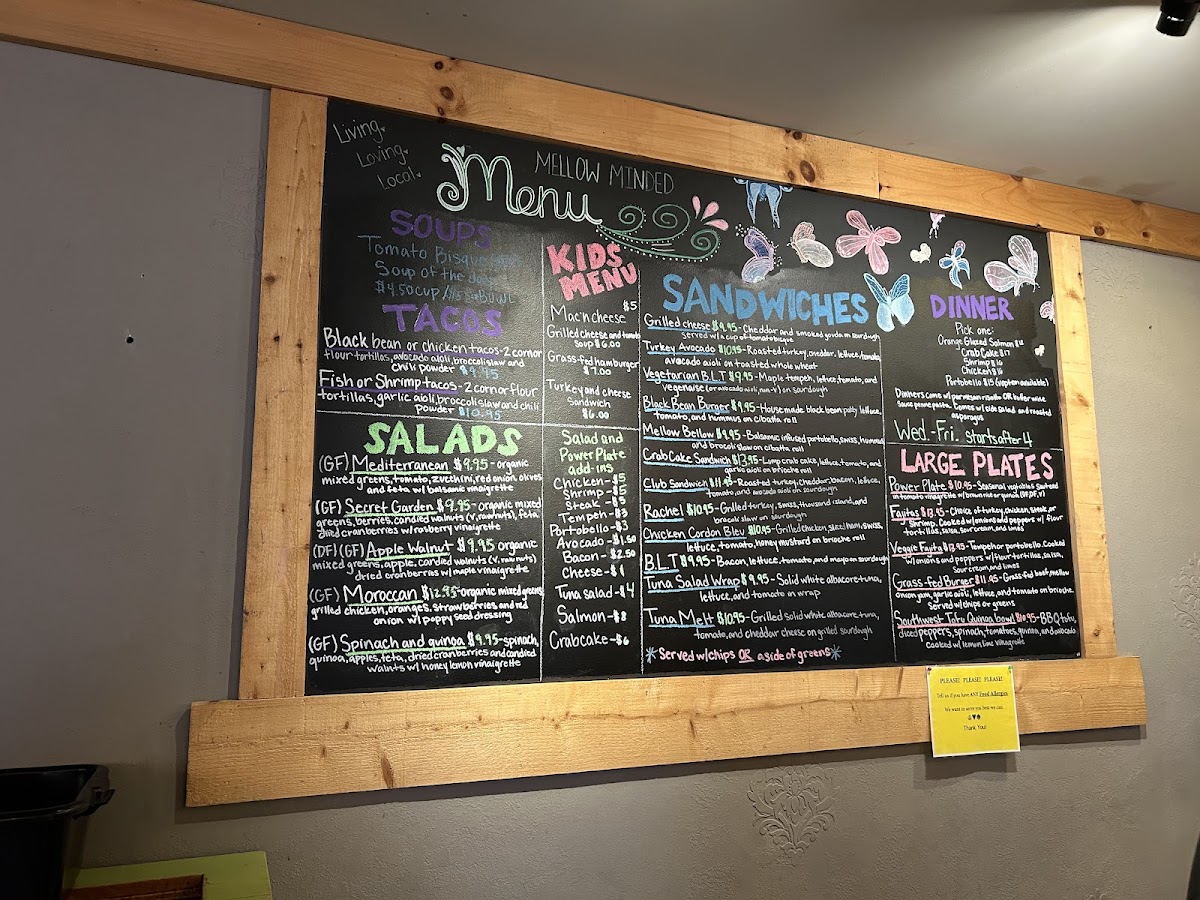 Living
Loving
Local
Menu
MELLOW MINDED
SOUPS
Tomato Bisque
Soup of the day
$4.50 CUP / BOWL
TACOS
Black bean or chicken tacos - 2 corn or
flour tortillas, avocado aioli, broccoli slaw and
chili powder $9.95
Fish or Shrimp tacos - 2 corn or flour
tortillas, garlic aioli, broccoli slaw and chili
powder $10.95
SALADS
(GF) Mediterranean $9.95 - organic
mixed greens, tomato, zucchini, red onion, olives
and feta w/ balsamic vinaigrette
(GF) Secret Garden $9.95 - organic mixed
greens, berries, candied walnuts (v, raw nuts), feta,
dried cranberries w/ rasberry vinaigrette
(DF) (GF) Apple Walnut $9.95 organic
mixed greens, apple, candied walnuts (v, raw nuts)
dried cranberries w/ maple vinaigrette
(GF) Moroccan $12.95 - organic mixed greens
grilled chicken, oranges, strawberries and red
onion w/ poppyseed dressing
(GF) Spinach and quinoa $9.95 - spinach,
quinoa, apples, feta, dried cranberries and candied
walnuts w/ honey lemon vinaigrette
KIDS
MENU
Mac'n cheese $5
Grilled cheese and tomato
soup $6.00
Grass-fed hamburger
$7.00
Turkey and cheese
sandwich
$6.00
Salad and
Power Plate
add-ins
Chicken - $5
Shrimp - $5
Steak - $5
Tempeh - $3
Portobello - $3
Avocado - $1.50
Bacon - $2.50
Cheese - $1
Tuna salad - $4
Salmon - $8
Crabcake - $6
SANDWICHES
Grilled cheese $9.95 - Cheddar and smoked gouda on sourdough
served w/ a cup of tomato bisque
Turkey Avocado $10.95 - Roasted turkey, cheddar, lettuce, tomato,
avocado aioli on toasted whole wheat
Vegetarian B.L.T $9.95 - Maple tempeh, lettuce, tomato, and
vegenaise (or avocado aioli, non-v) on sourdough
Black Bean Burger $9.95 - House made black bean patty, lettuce,
tomato, and hummus on ciabatta roll
Mellow Bellow $9.95 - Balsamic infused portobello, swiss, hummus
and brocoli slaw on ciabatta roll
Crab Cake Sandwich $13.95 - Lump crab cake, lettuce, tomato, and
garlic aioli on brioche roll
Club Sandwich $11.95 - Roasted turkey, cheddar, bacon, lettuce,
tomato, and avocado aioli on sourdough
Rachel $10.95 - Grilled turkey, swiss, thousand island, and
brocoli slaw on sourdough
Chicken Cordon Bleu $10.95 - Grilled chicken, steel ham, swiss,
lettuce, tomato, honey mustard on brioche roll
B.L.T $9.95 - Bacon, lettuce, tomato, and mayo on sourdough
Tuna Salad Wrap $9.95 - Solid white albacore tuna,
lettuce, and tomato on wrap
Tuna Melt $10.95 - Grilled solid white albacore tuna,
tomato, and cheddar cheese on grilled sourdough
*Served w/ chips OR a side of greens*
DINNER
Pick one:
Orange Glazed Salmon
Crab Cake $17
Shrimp $16
Chicken $16
Portobello $15 (v option available)
Dinners come w/ parmesan risotto OR butter wine
sauce penne pasta. Comes w/ side salad and roasted
asparagus
Wed.-Fri. starts after 4
LARGE PLATES
Power Plate $10.95 - Seasonal vegetables sauteed
in tomato vinagrette w/ brown rice or quinoa (GF, DF, V)
Fajitas $13.95 - Choice of turkey, chicken, steak, or
shrimp. Cooked w/ onions and peppers w/ flour
tortillas, salsa, sour cream, and limes
Veggie Fajita $13.95 - Tempeh or portobello. Cooked
w/ onions and peppers w/ flour tortillas, salsa,
sour cream, and limes
Grass-fed Burger $11.95 - Grass-fed beef, mellow
onion jam, garlic aioli, lettuce, and tomato on brioche.
Served w/ chips or greens
Southwest Tofu Quinoa bowl $10.95 - BBQ tofu,
diced peppers, spinach, tomatoes, quinoa, and avocado
cooked w/ lemon lime vinaigrette
PLEASE! PLEASE! PLEASE!
Tell us if you have ANY Food Allergies
We want to serve you best we can.
Thank You!